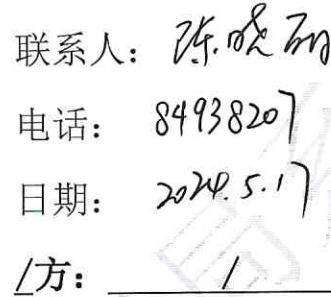 联系人：陈晓丽
电话：84938207
日期：2024.5.17
/方：/